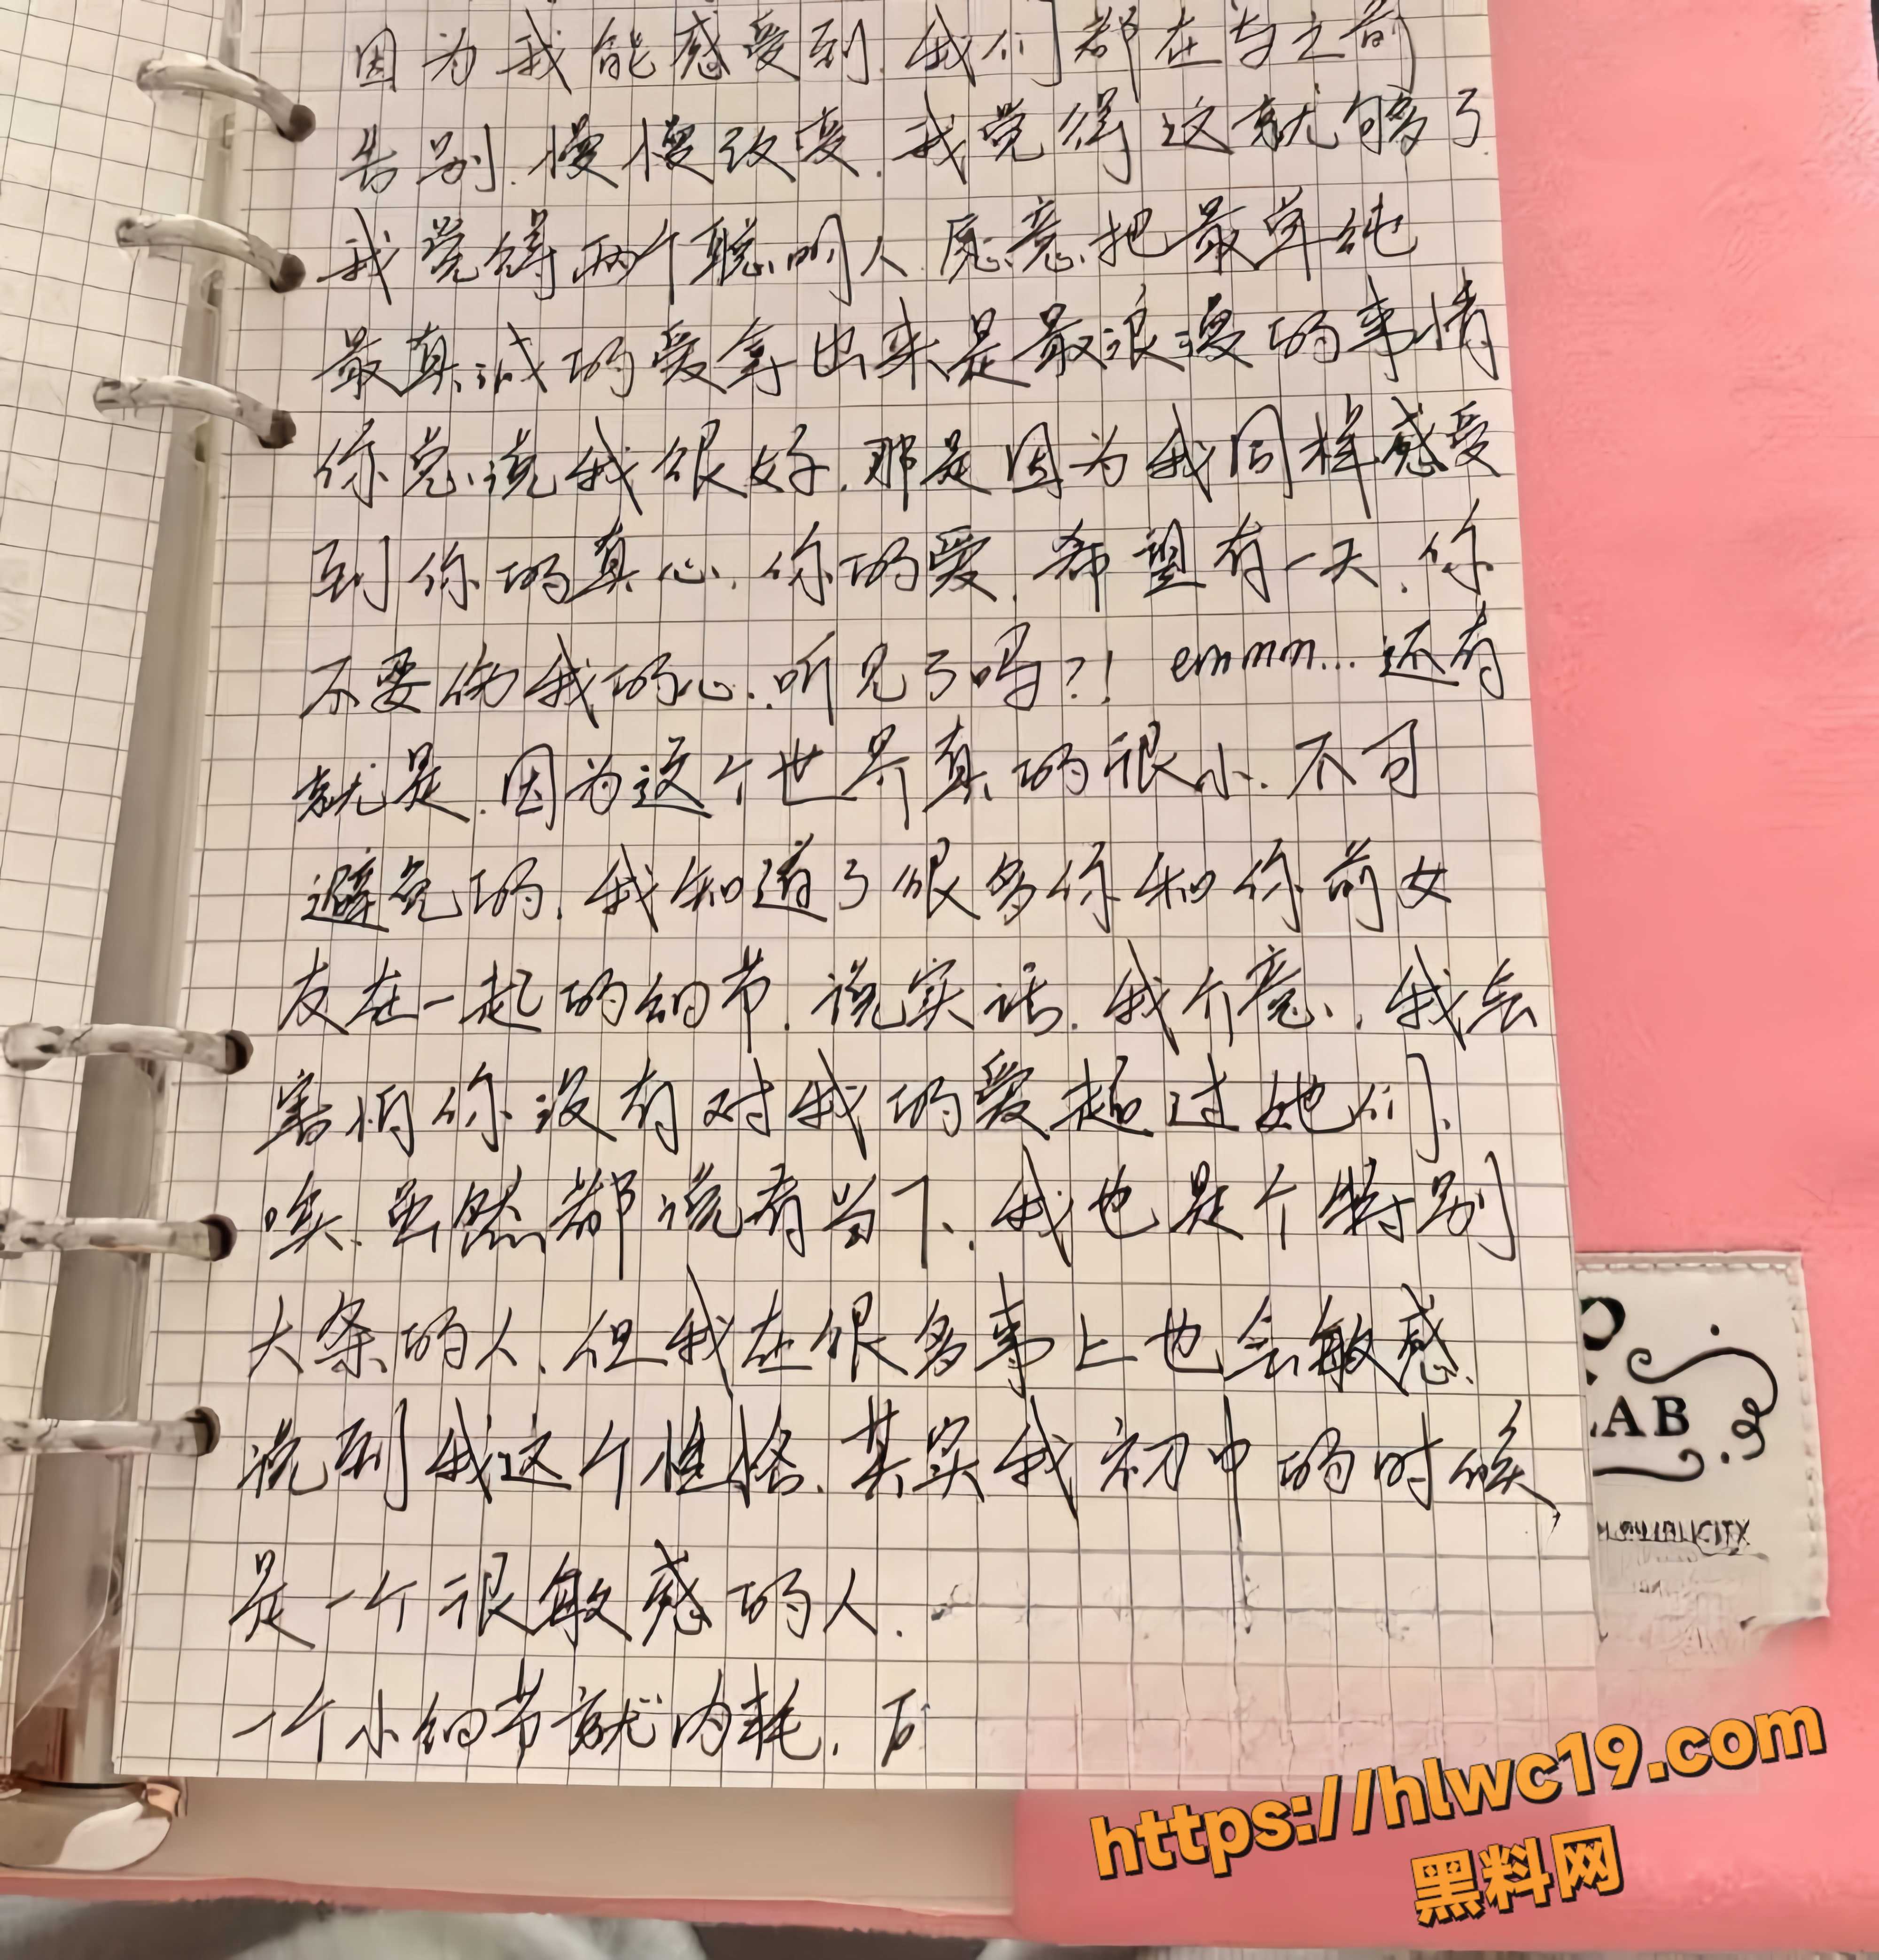 因为我能感受到.我们都在与之前
告别.慢慢改变.我觉得这就够了.
我觉得两个聪明人.愿意把最单纯
最真诚的爱拿出来是最浪漫的事情
你总说我很好.那是因为我同样感受
到你的真心.你的爱.希望有一天.你
不要伤我的心.听见了吗?! emmm...还有
就是.因为这个世界真的很小.不可
避免的.我知道了很多你和你前女
友在一起的细节.说实话.我介意.我会
害怕你没有对我的爱超过她们.
唉.虽然都说看当下.我也是个特别
大条的人.但我在很多事上也会敏感.
说到我这个性格.其实我初中的时候,
是一个很敏感的人.
一个小细节就内耗.
LAB
https://hlwc19.com
黑料网